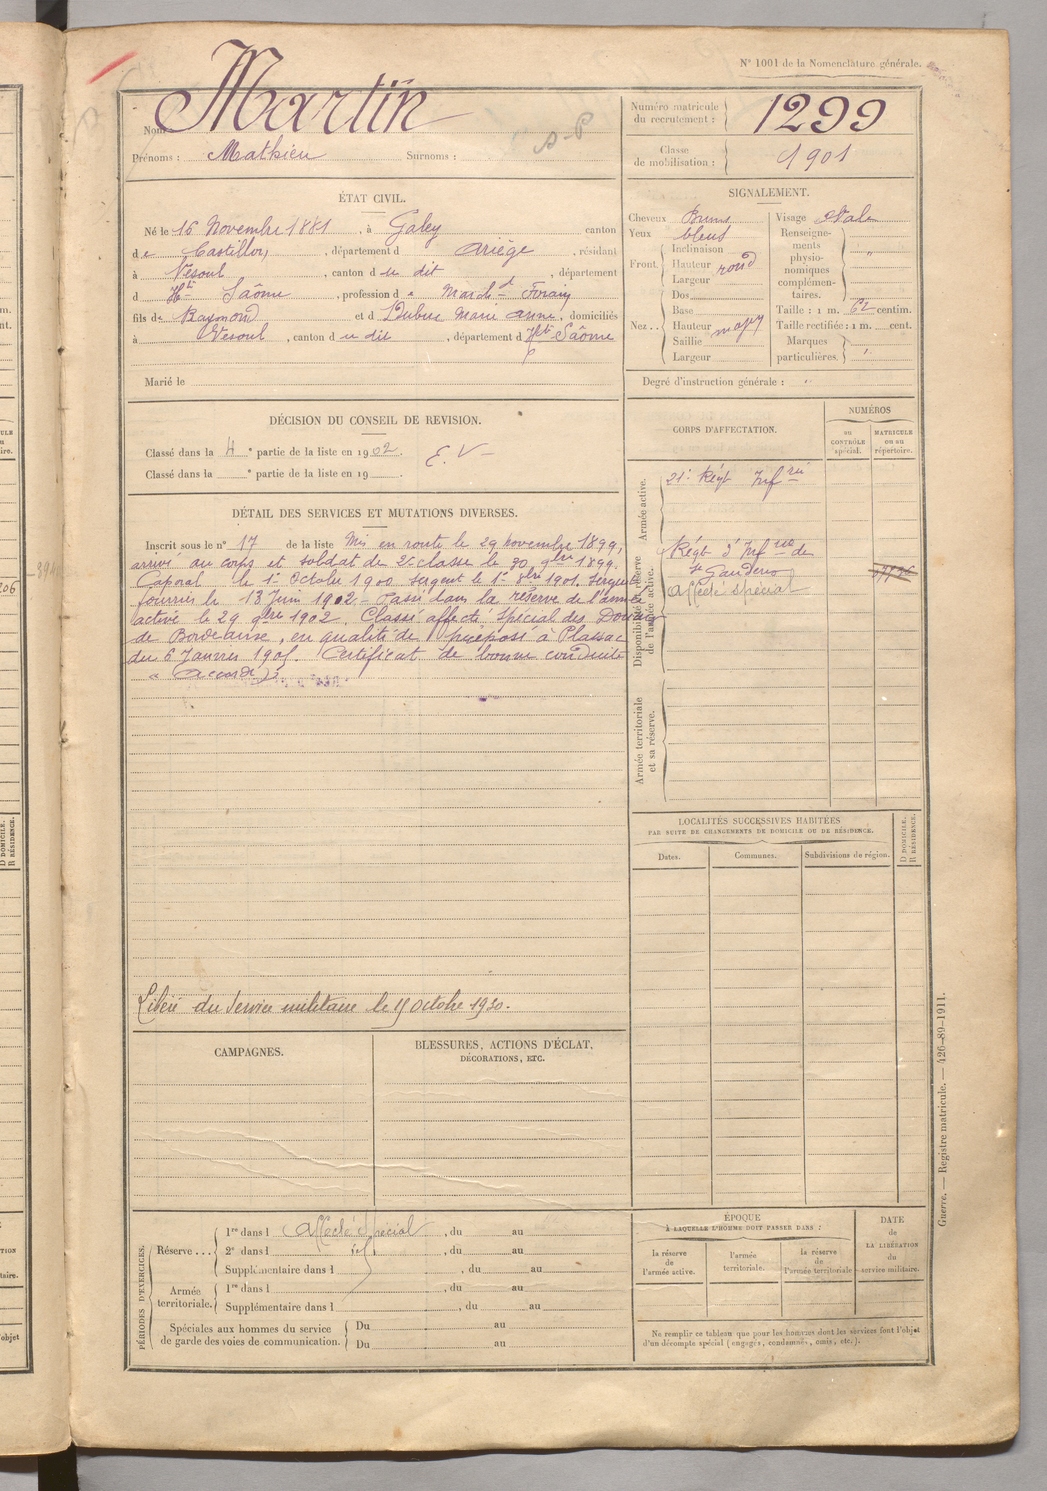 N° 1001 de la Nomenclature générale.
Nom Martin
Prénoms : Mathieu Surnoms :
Numéro matricule du recrutement : 1299
Classe de mobilisation : 1901
ÉTAT CIVIL.
Né le 16 Novembre 1881, à Galey canton
de Castillon, département d Ariège, résidant
à Vesoul, canton du dit, département
d Hte Saône, profession de March d Forain
fils de Raymond et d Dubuc Marie Anne, domiciliés
à Vesoul, canton du dit, département d Hte Saône
Marié le
SIGNALEMENT.
Cheveux Bruns
Yeux bleus
Front. Inclinaison
Hauteur rond
Largeur
Nez... Dos
Base
Hauteur moyen
Saillie
Largeur
Visage Ovale
Renseignements physionomiques complémentaires. "
Taille : 1 m. 62 centim.
Taille rectifiée : 1 m. cent.
Marques particulières. "
Degré d'instruction générale : "
DÉCISION DU CONSEIL DE REVISION.
Classé dans la 4e partie de la liste en 1902. E.V
Classé dans la e partie de la liste en 19
DÉTAIL DES SERVICES ET MUTATIONS DIVERSES.
Inscrit sous le n° 17 de la liste Mis en route le 29 novembre 1899,
arrivé au corps et soldat de 2e classe le 30 9bre 1899.
Caporal le 1er Octobre 1900 sergent le 1er 8bre 1901. Sergent
fourrier le 13 Juin 1902 - Passé dans la réserve de l'armée
active le 29 9bre 1902. Classé affecté spécial des Douanes
de Bordeaux, en qualité de préposé à Plassac
du 6 Janvier 190. Certificat de bonne conduite
" Accordé "
Libéré du service militaire le octobre 1930.
CORPS D'AFFECTATION.
NUMÉROS
au CONTRÔLE spécial.
MATRICULE ou au répertoire.
Armée active.
21e Régt Infrie
Disponibilité et réserve de l'armée active.
Régt d'Infrie de
St Gaudens
Affecté spécial
Armée territoriale et sa réserve.
LOCALITÉS SUCCESSIVES HABITÉES
PAR SUITE DE CHANGEMENTS DE DOMICILE OU DE RÉSIDENCE.
Dates.
Communes.
Subdivisions de région.
D DOMICILE.
R RÉSIDENCE.
CAMPAGNES.
BLESSURES, ACTIONS D'ÉCLAT,
DÉCORATIONS, ETC.
PÉRIODES D'EXERCICES.
Réserve...
1re dans l Affecté Spécial, du au
2e dans l, du au
Supplémentaire dans l, du au
Armée territoriale.
1re dans l, du au
Supplémentaire dans l, du au
Spéciales aux hommes du service
de garde des voies de communication.
Du au
Du au
ÉPOQUE
À LAQUELLE L'HOMME DOIT PASSER DANS :
la réserve de l'armée active.
l'armée territoriale.
la réserve de l'armée territoriale
DATE de LA LIBÉRATION du service militaire.
Ne remplir ce tableau que pour les hommes dont les services font l'objet
d'un décompte spécial (engagés, condamnés, omis, etc.).
Guerre. — Registre matricule. — 426-89-1911.